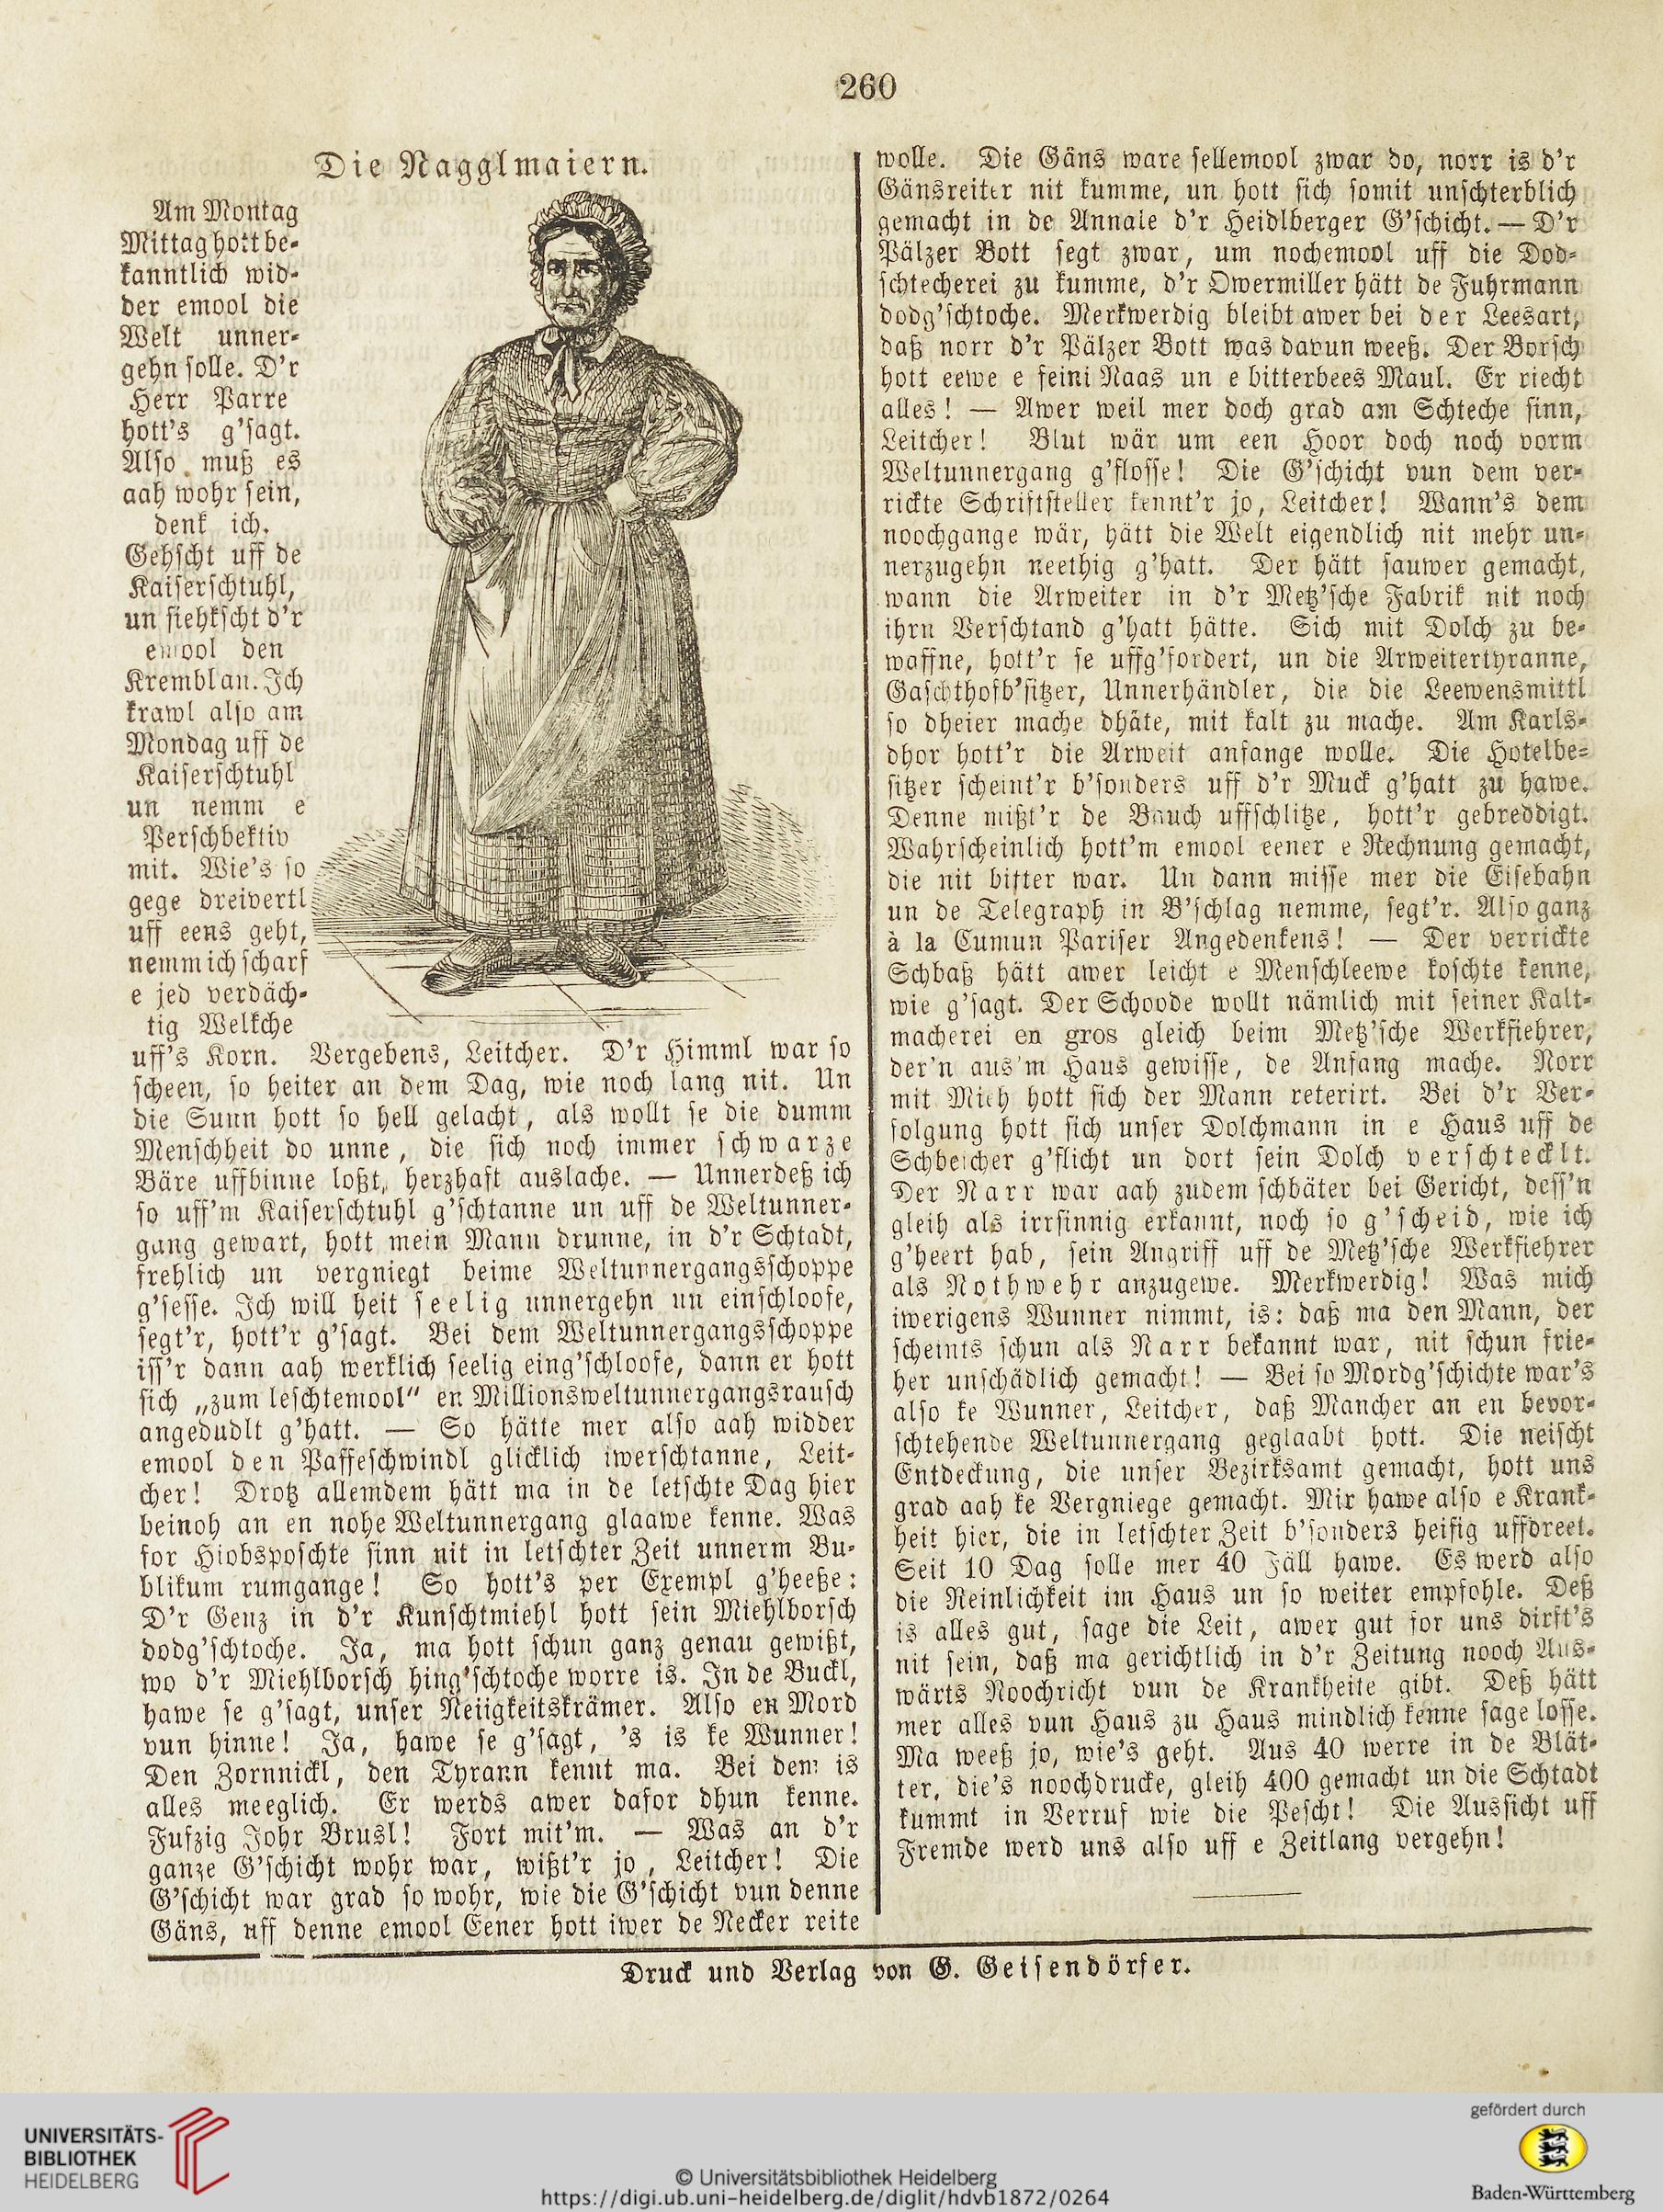 260
Die Nagglmaiern.
Am Montag
Mittag hott be-
kanntlich wid-
der emool die
Welt unner-
gehn solle. D'r
Herr Parre
hott's g'sagt.
Also muß es
aah wohr sein,
denk ich.
Gehscht uff de
Kaiserschtuhl,
un siehkscht d'r
emool den
Krembl an. Ich
krawl also am
Mondag uff de
Kaiserschtuhl
un nemm e
Perschbektiv
mit. Wie's so
gege dreivertl
uff eens geht,
nemm ich scharf
e jed verdäch-
tig Welkche
uff's Korn. Vergebens, Leitcher. D'r Himml war so
scheen, so heiter an dem Dag, wie noch lang nit. Un
die Sunn hott so hell gelacht, als wollt se die dumm
Menschheit do unne, die sich noch immer schwarze
Bäre uffbinne loßt, herzhaft auslache. — Unnerdeß ich
so uff'm Kaiserschtuhl g'schtanne un uff de Weltunner-
gang gewart, hott mein Mann drunne, in d'r Schtadt,
frehlich un vergniegt beime Weltunnergangsschoppe
g'sesse. Ich will heit seelig unnergehn un einschloofe,
segt'r, hott'r g'sagt. Bei dem Weltunnergangsschoppe
iss'r dann aah werklich seelig eing'schloofe, dann er hott
sich „zum leschtemool“ en Millionsweltunnergangsrausch
angedudlt g'hatt. — So hätte mer also aah widder
emool den Paffeschwindl glicklich iwerschtanne, Leit-
cher! Drotz allemdem hätt ma in de letschte Dag hier
beinoh an en nohe Weltunnergang glaawe kenne. Was
for Hiobsposchte sinn nit in letschter Zeit unnerm Bu-
blikum rumgange! So hott's per Exempl g'heeße:
D'r Genz in d'r Kunschtmiehl hott sein Miehlborsch
dodg'schtoche. Ja, ma hott schun ganz genau gewißt,
wo d'r Miehlborsch hing'schtoche worre is. In de Buckl,
hawe se g'sagt, unser Neiigkeitskrämer. Also en Mord
vun hinne! Ja, hawe se g'sagt, 's is ke Wunner!
Den Zornnickl, den Tyrann kennt ma. Bei dem is
alles meeglich. Er werds awer dafor dhun kenne.
Fufzig Johr Brusl! Fort mit'm. — Was an d'r
ganze G'schicht wohr war, wißt'r jo, Leitcher! Die
G'schicht war grad so wohr, wie die G'schicht vun denne
Gäns, uff denne emool Eener hott iwer de Necker reite
wolle. Die Gäns ware sellemool zwar do, norr is d'r
Gänsreiter nit kumme, un hott sich somit unschterblich
gemacht in de Annale d'r Heidlberger G'schicht. — D'r
Pälzer Bott segt zwar, um nochemool uff die Dod-
schtecherei zu kumme, d'r Owermiller hätt de Fuhrmann
dodg'schtoche. Merkwerdig bleibt awer bei der Leesart,
daß norr d'r Pälzer Bott was davun weeß. Der Borsch
hott eewe e feini Naas un e bitterbees Maul. Er riecht
alles! — Awer weil mer doch grad am Schteche sinn,
Leitcher! Blut wär um een Hoor doch noch vorm
Weltunnergang g'flosse! Die G'schicht vun dem ver-
rickte Schriftsteller kennt'r jo, Leitcher! Wann's dem
noochgange wär, hätt die Welt eigendlich nit mehr un-
nerzugehn neethig g'hatt. Der hätt sauwer gemacht,
wann die Arweiter in d'r Metz'sche Fabrik nit noch
ihrn Verschtand g'hatt hätte. Sich mit Dolch zu be-
waffne, hott'r se uffg'fordert, un die Arweitertyranne,
Gaschthofb'sitzer, Unnerhändler, die die Leewensmittl
so dheier mache dhäte, mit kalt zu mache. Am Karls-
dhor hott'r die Arweit anfange wolle. Die Hotelbe-
sitzer scheint'r b'sonders uff d'r Muck g'hatt zu hawe.
Denne mißt'r de Bauch uffschlitze, hott'r gebreddigt.
Wahrscheinlich hott'm emool eener e Rechnung gemacht,
die nit bitter war. Un dann misse mer die Eisebahn
un de Telegraph in B'schlag nemme, segt'r. Also ganz
à la Cumun Pariser Angedenkens! — Der verrickte
Schbaß hätt awer leicht e Menschleewe koschte kenne,
wie g'sagt. Der Schoode wollt nämlich mit seiner Kalt-
macherei en gros gleich beim Metz'sche Werkfiehrer,
der'n aus'm Haus gewisse, de Anfang mache. Norr
mit Mieh hott sich der Mann reterirt. Bei d'r Ver-
folgung hott sich unser Dolchmann in e Haus uff de
Schbeicher g'flicht un dort sein Dolch verschtecklt.
Der Narr war aah zudem schbäter bei Gericht, dess'n
gleih als irrsinnig erkannt, noch so g'scheid, wie ich
g'heert hab, sein Angriff uff de Metz'sche Werkfiehrer
als Nothwehr anzugewe. Merkwerdig! Was mich
iwerigens Wunner nimmt, is: daß ma den Mann, der
scheints schun als Narr bekannt war, nit schun frie-
her unschädlich gemacht! — Bei so Mordg'schichte war's
also ke Wunner, Leitcher, daß Mancher an en bevor-
schtehende Weltunnergang geglaabt hott. Die neischt
Entdeckung, die unser Bezirksamt gemacht, hott uns
grad aah ke Vergniege gemacht. Mir hawe also e Krank-
heit hier, die in letschter Zeit b'sonders heifig uffdreet.
Seit 10 Dag solle mer 40 Fäll hawe. Es werd also
die Reinlichkeit im Haus un so weiter empfohle. Deß
is alles gut, sage die Leit, awer gut for uns dirft's
nit sein, daß ma gerichtlich in d'r Zeitung nooch Aus-
wärts Noochricht vun de Krankheite gibt. Deß hätt
mer alles vun Haus zu Haus mindlich kenne sage losse.
Ma weeß jo, wie's geht. Aus 40 werre in de Blät-
ter, die's noochdrucke, gleih 400 gemacht un die Schtadt
kummt in Verruf wie die Pescht! Die Aussicht uff
Fremde werd uns also uff e Zeitlang vergehn!
Druck und Verlag von G. Geisendörfer.
UNIVERSITÄTS-
BIBLIOTHEK
HEIDELBERG
© Universitätsbibliothek Heidelberg
https://digi.ub.uni-heidelberg.de/diglit/hdvb1872/0264
gefördert durch
Baden-Württemberg